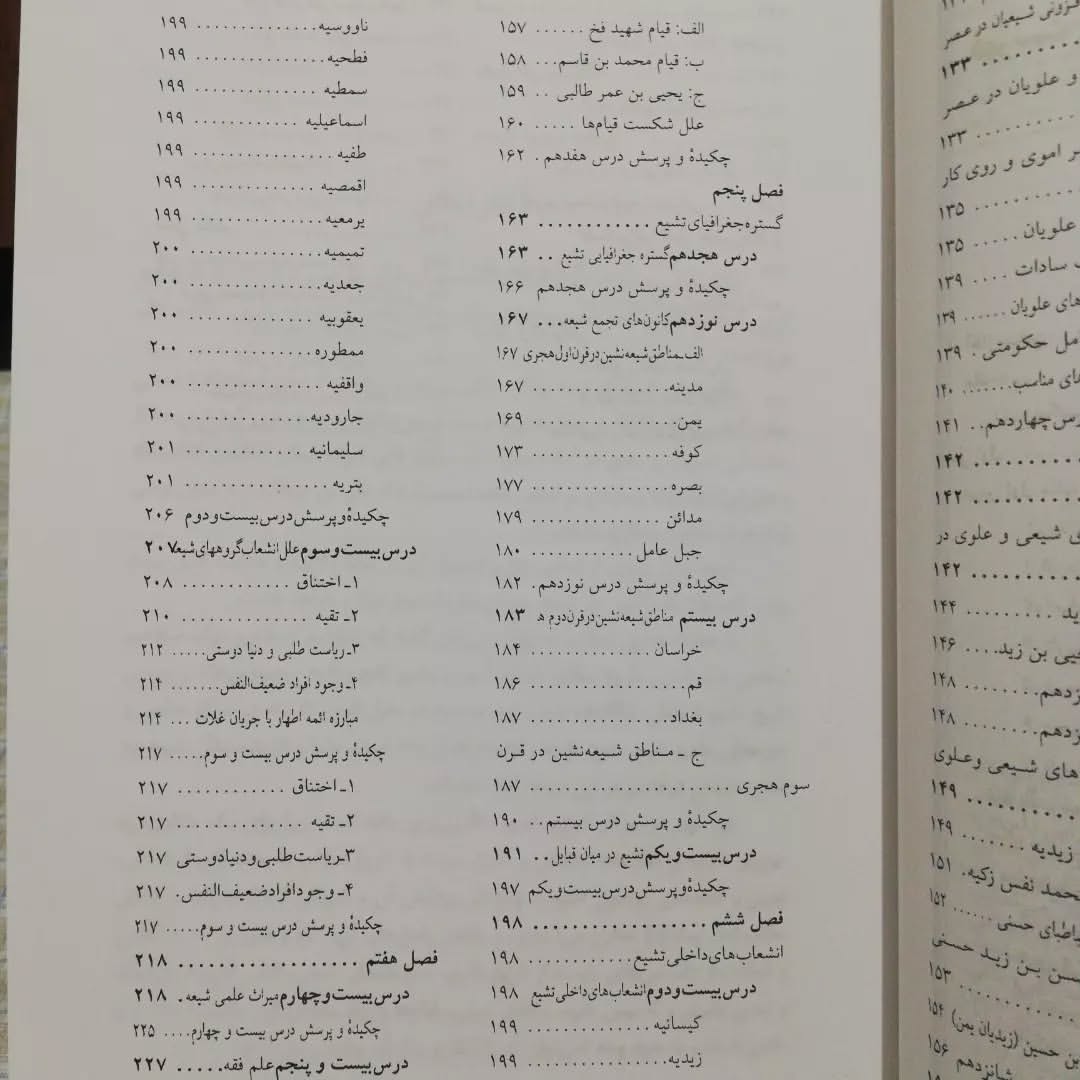 فزونی شیعیان در عصر
۱۳۳
و علویان در عصر
۱۳۳
ر اموی و روی کار
۱۳۵
علویان..... ۱۳۵
سادات .... ۱۳۹
های علویان ...... ۱۳۹
مل حکومتی. ۱۳۹
های مناسب....... ۱۴۰
رس چهاردهم.. ۱۴۱
۱۴۲
۱۴۲
ی شیعی و علوی در
۱۴۲
ید ......... ۱۴۴
حیی بن زید.... ۱۴۶
زدهم........ ۱۴۸
زدهم........ ۱۴۸
های شیعی وعلوی
۱۴۹
زیدیه ....... ۱۴۹
حمد نفس زکیه. ۱۵۱
باطبای حسنی ...... ۱۵۲
سن بن زید حسنی
۱۵۳
بن حسین (زیدیان یمن) ۱۵۴
شانزدهم ۱۵۶
الف: قیام شهید فخ ...... ۱۵۷
ب: قیام محمد بن قاسم... ۱۵۸
ج: یحیی بن عمر طالبی .. ۱۵۹
علل شکست قیام‌ها ..... ۱۶۰
چکیدۀ و پرسش درس هفدهم . ۱۶۲
فصل پنجم
گستره جغرافیای تشیع ............ ۱۶۳
درس هجدهم گستره جغرافیایی تشیع .. ۱۶۳
چکیدۀ و پرسش درس هجدهم ۱۶۶
درس نوزدهم کانون‌های تجمع شیعه... ۱۶۷
الف ـ مناطق شیعه نشین در قرن اول هجری ۱۶۷
مدینه................ ۱۶۷
یمن................. ۱۶۹
کوفه................ ۱۷۳
بصره................ ۱۷۷
مدائن ............... ۱۷۹
جبل عامل ............ ۱۸۰
چکیدۀ و پرسش درس نوزدهم. ۱۸۲
درس بیستم مناطق شیعه نشین در قرن دوم ه ۱۸۳
خراسان .............. ۱۸۴
قم.................. ۱۸۶
بغداد................ ۱۸۷
ج ـ مناطق شیعه‌نشین در قرن
سوم هجری ....................... ۱۸۷
چکیدۀ و پرسش درس بیستم.. ۱۹۰
درس بیست و یکم تشیع در میان قبایل.. ۱۹۱
چکیدۀ و پرسش درس بیست و یکم ۱۹۷
فصل ششم .................. ۱۹۸
انشعاب‌های داخلی تشیع............ ۱۹۸
درس بیست و دوم انشعاب‌های داخلی تشیع ۱۹۸
کیسانیه .............. ۱۹۹
زیدیه................ ۱۹۹
ناووسیه.............. ۱۹۹
فطحیه............... ۱۹۹
سمطیه .............. ۱۹۹
اسماعیلیه ............ ۱۹۹
طفیه ................ ۱۹۹
اقمصیه .............. ۱۹۹
یرمعیه............... ۱۹۹
تمیمیه............... ۲۰۰
جعدیه............... ۲۰۰
یعقوبیه .............. ۲۰۰
ممطوره .............. ۲۰۰
واقفیه ............... ۲۰۰
جارودیه.............. ۲۰۰
سلیمانیه ............. ۲۰۱
بتریه ................ ۲۰۱
چکیدۀ و پرسش درس بیست و دوم ۲۰۶
درس بیست و سوم علل انشعاب گروههای شیعه ۲۰۷
۱ـ اختناق ............ ۲۰۸
۲ـ تقیه .............. ۲۱۰
۳ـ ریاست طلبی و دنیا دوستی..... ۲۱۲
۴ـ وجود افراد ضعیف‌النفس....... ۲۱۴
مبارزه ائمه اطهار با جریان غلات ... ۲۱۴
چکیدۀ و پرسش درس بیست و سوم..... ۲۱۷
۱ـ اختناق ............ ۲۱۷
۲ـ تقیه .............. ۲۱۷
۳ـ ریاست طلبی و دنیا دوستی ۲۱۷
۴ـ وجود افراد ضعیف‌النفس. ۲۱۷
چکیدۀ و پرسش درس بیست و سوم..... ۲۱۷
فصل هفتم .................. ۲۱۸
درس بیست و چهارم میراث علمی شیعه. ۲۱۸
چکیدۀ و پرسش درس بیست و چهارم.... ۲۲۵
درس بیست و پنجم علم فقه..... ۲۲۷